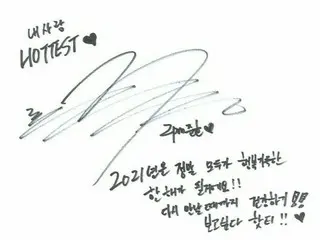 내사랑
HOTTEST ♥
2pm준호 ♥
2021년은 정말 모두가 행복가득한
한 해가 될거예요!!
다시 만날 때까지 건강하기
보고싶다 핫티!! ♥